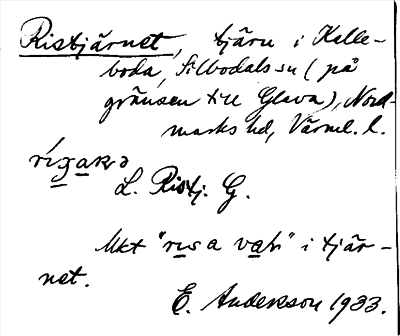 Ristjärnet, tjärn i Kalle-
boda, Silbodals sn (på
gränsen till Glava), Nord-
marks hd, Värml. l.
L. Ristj. G.
Mkt "rɩsa" i tjär-
net.
E. Andersson 1933.